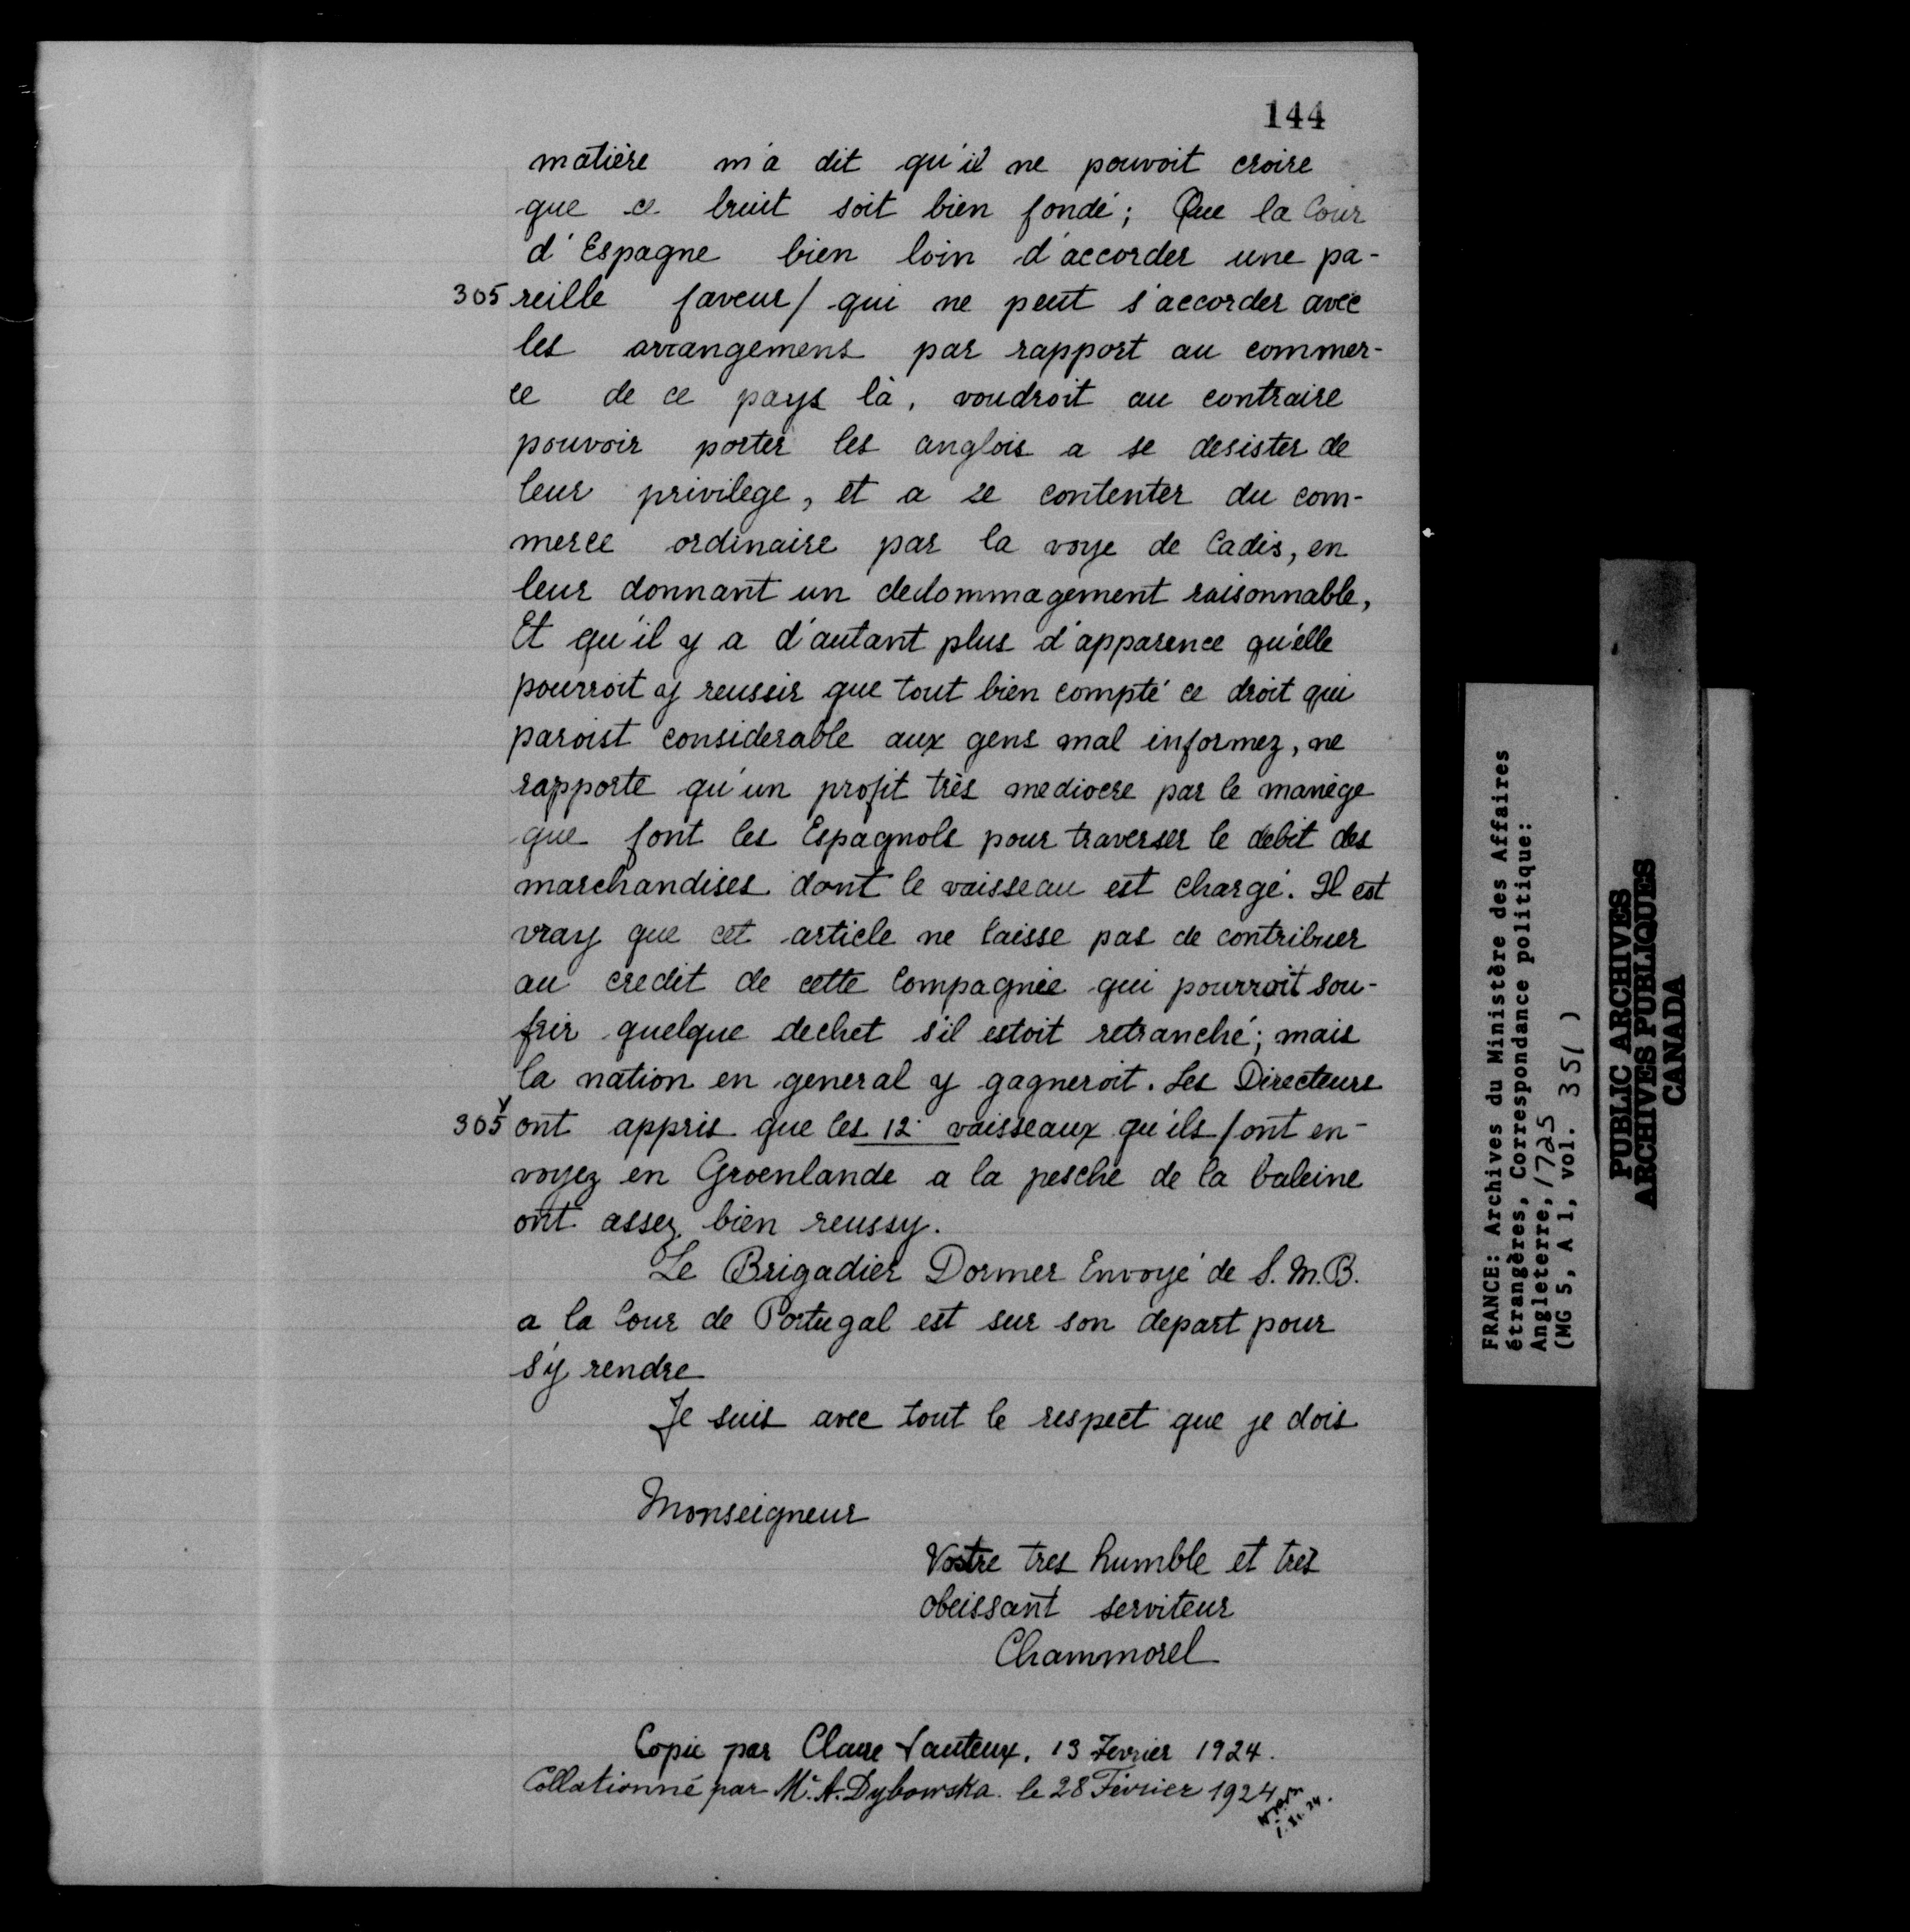 144
matière m'a dit qu'il ne pouvoit croire
que ce bruit soit bien fondé; Que la Cour
d'Espagne bien loin d'accorder une pa-
305 reille faveur/ qui ne peut s'accorder avec
les arrangemens par rapport au commer-
ce de ce pays là, voudroit au contraire
pouvoir porter les anglois a se desister de
leur privilege, et a se contenter du com-
merce ordinaire par la voye de Cadis, en
leur donnant un dedommagement raisonnable,
Et qu'il y a d'autant plus d'apparence qu'elle
pourroit y reussir que tout bien compté ce droit qui
paroist considerable aux gens mal informez, ne
rapporte qu'un profit très mediocre par le manège
que font les Espagnols pour traverser le debit des
marchandises dont le vaisseau est chargé. Il est
vray que cet article ne laisse pas de contribuer
au credit de cette Compagnie qui pourroit sou-
frir quelque dechet s'il estoit retranché; mais
la nation en general y gagneroit. Les Directeurs
305v ont appris que les 12. vaisseaux qu'ils/ont en-
voyez en Groenlande a la pesche de la baleine
ont assez bien reussy.
Le Brigadier Dormer Envoyé de S. M. B.
a la Cour de Portugal est sur son depart pour
s'y rendre
Je suis avec tout le respect que je dois
Monseigneur
Vostre tres humble et tres
obeissant serviteur
Chammorel
Copié par Claire Vauteux. 13 Fevrier 1924.
Collationné par Mr. A. Dybowska. le 28 Février 1924
FRANCE: Archives du Ministère des Affaires
étrangères, Correspondance politique:
Angleterre, 1725
(MG 5, A 1, vol. 351 )
PUBLIC ARCHIVES
ARCHIVES PUBLIQUES
CANADA